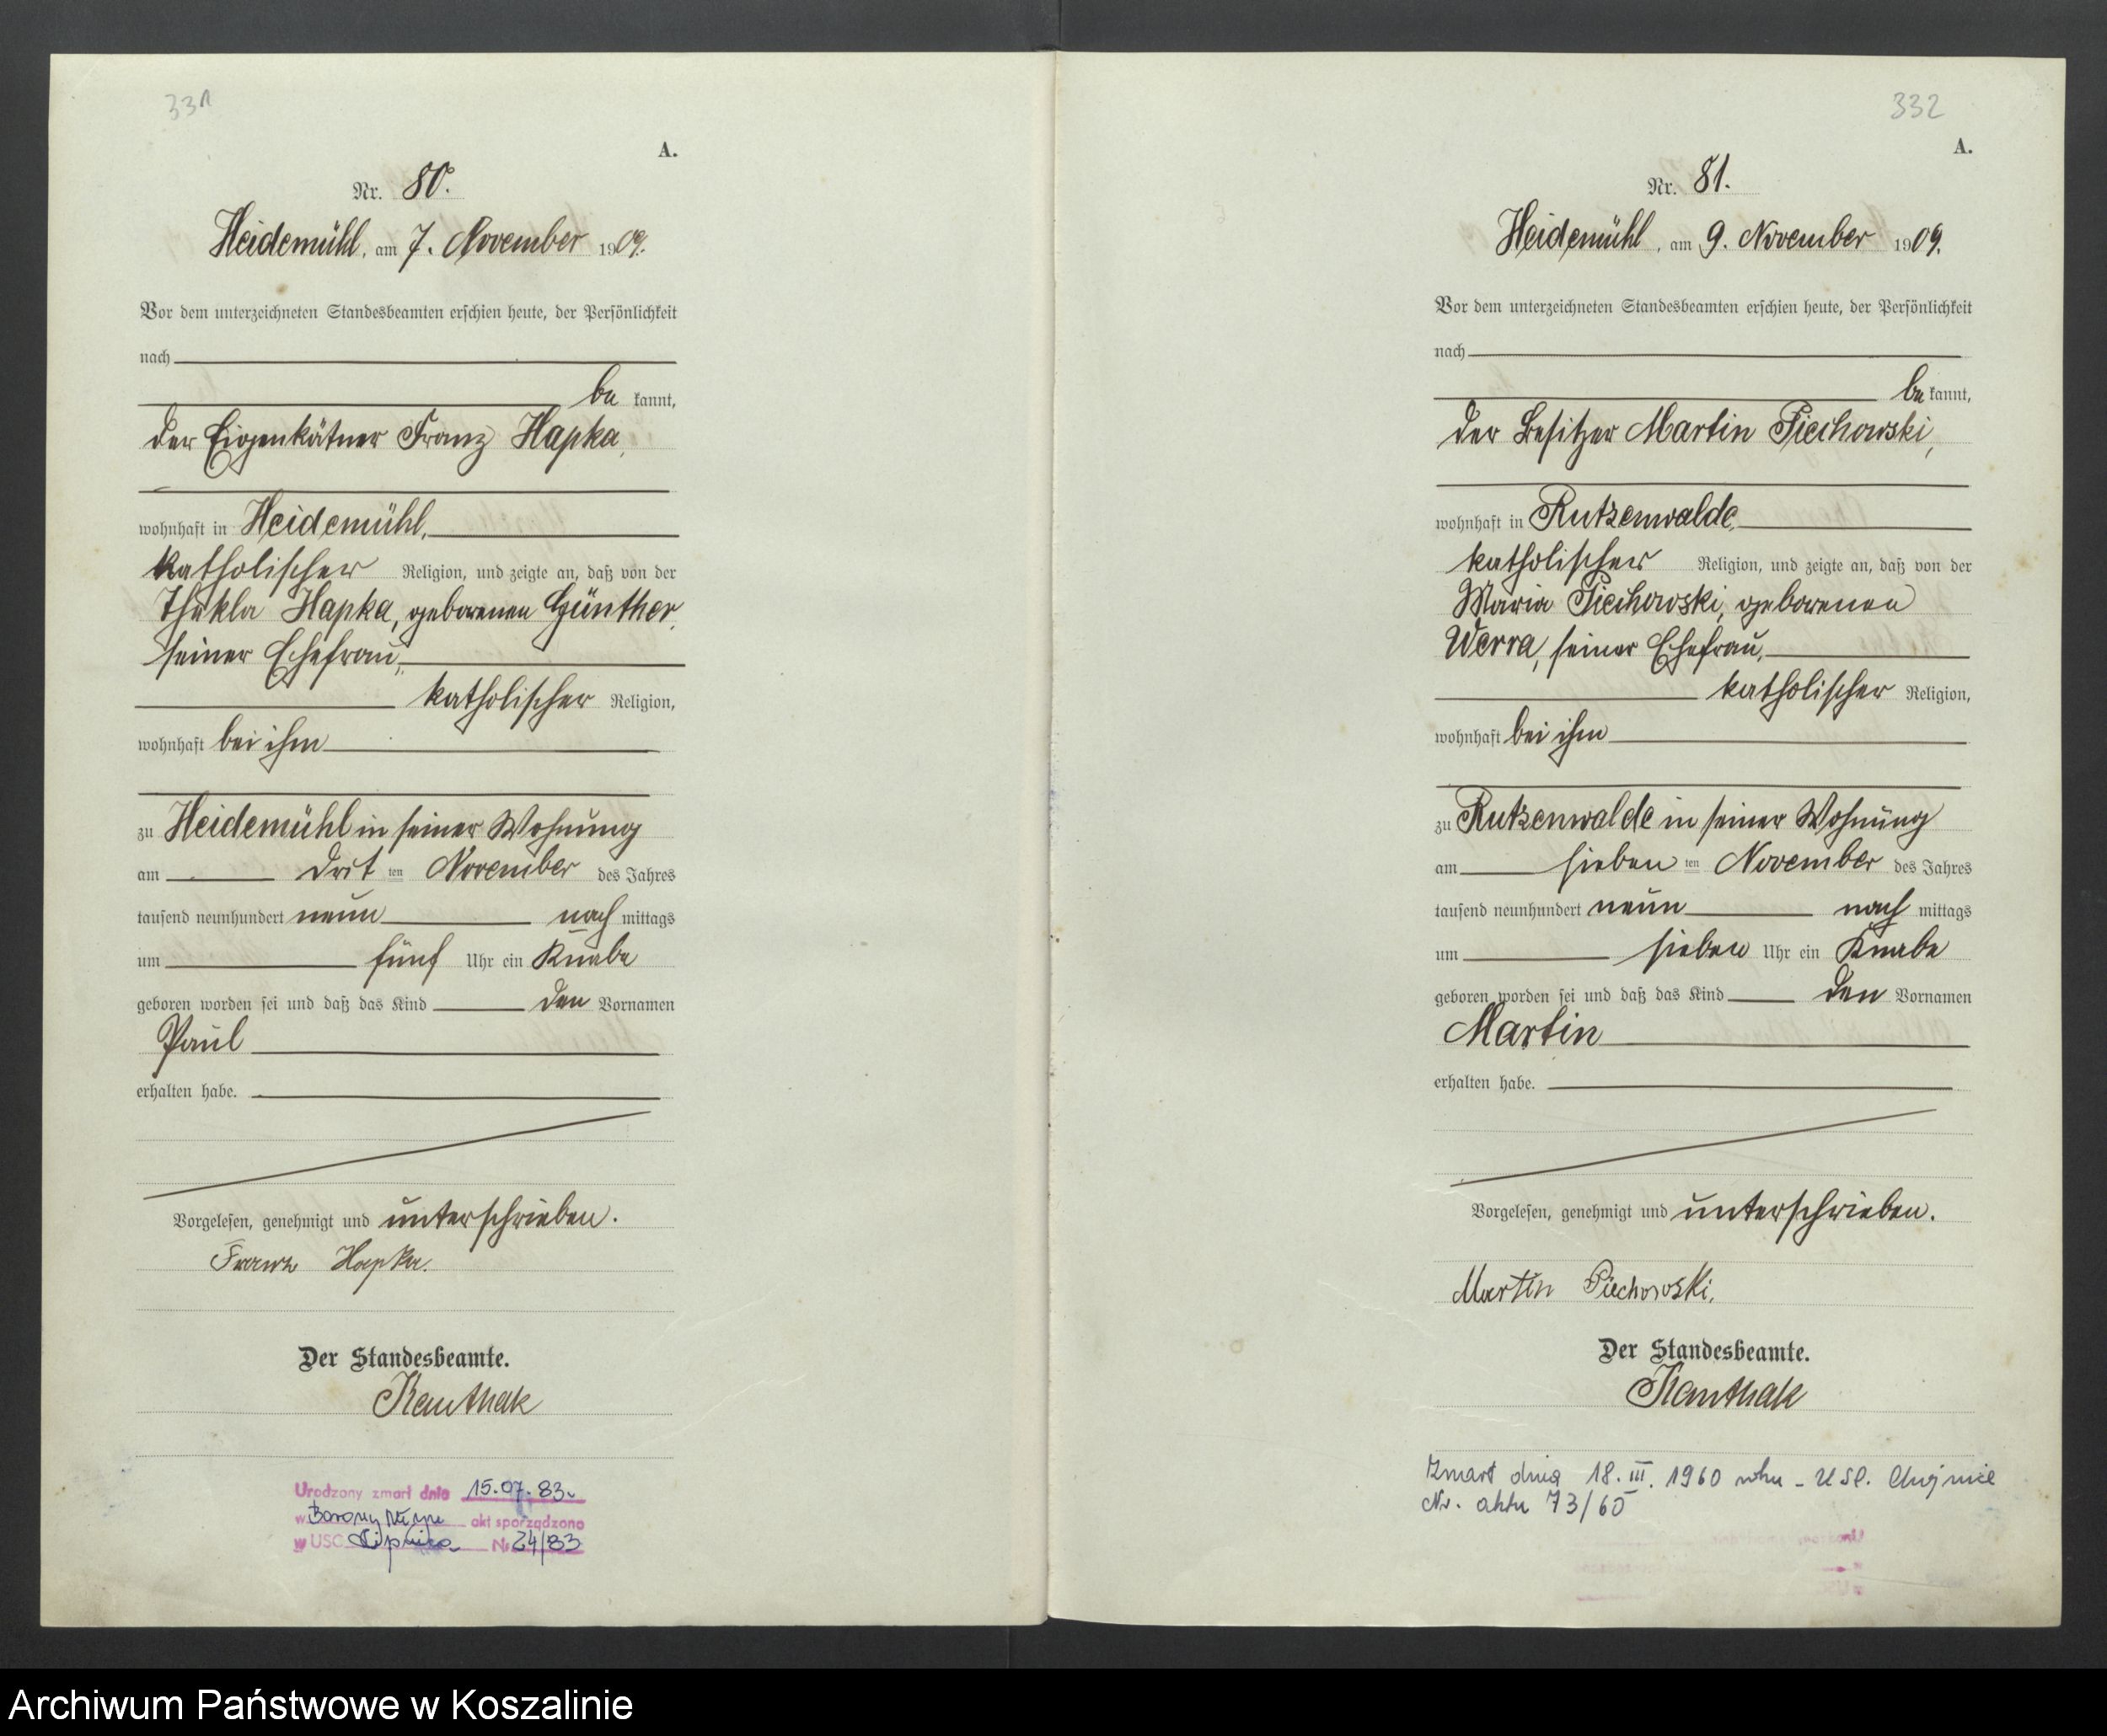 331
A.
Nr. 80.
Heidemühl, am 7. November 1909.
Vor dem unterzeichneten Standesbeamten erschien heute, der Persönlichkeit
nach
be kannt,
der Eigenkätner Franz Hapka,
wohnhaft in Heidemühl,
katholischer Religion, und zeigte an, daß von der
Thekla Hapka, geborenen Günther,
seiner Ehefrau,
katholischer Religion,
wohnhaft bei ihm
zu Heidemühl in seiner Wohnung
am drit ten November des Jahres
tausend neunhundert neun nach mittags
um fünf Uhr ein Knabe
geboren worden sei und daß das Kind den Vornamen
Paul
erhalten habe.
Vorgelesen, genehmigt und unterschrieben.
Franz Hapka.
Der Standesbeamte.
Kauthak
Urodzony zmarł dnia 15.07.83.
w Borowy Młyn akt sporządzono
w USC Lipnica Nr 24/83
332
A.
Nr. 81.
Heidemühl, am 9. November 1909.
Vor dem unterzeichneten Standesbeamten erschien heute, der Persönlichkeit
nach
be kannt,
der Besitzer Martin Piechowski,
wohnhaft in Rutzenwalde,
katholischer Religion, und zeigte an, daß von der
Maria Piechowski, geborenen
Werra, seiner Ehefrau,
katholischer Religion,
wohnhaft bei ihm
zu Rutzenwalde in seiner Wohnung
am sieben ten November des Jahres
tausend neunhundert neun nach mittags
um sieben Uhr ein Knabe
geboren worden sei und daß das Kind den Vornamen
Martin
erhalten habe.
Vorgelesen, genehmigt und unterschrieben.
Martin Piechowski.
Der Standesbeamte.
Kauthak
Zmarł dnia 18.III.1960 roku - USC. Chojnice
Nr. aktu 73/60
Archiwum Państwowe w Koszalinie